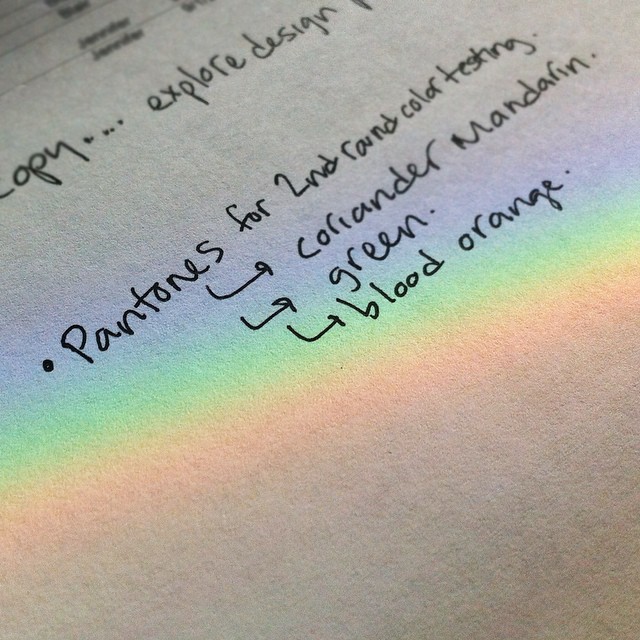 Jennifer
Jennifer
Copy.... explore design
• Pantones for 2nd round color testing.
↳ coriander Mandarin.
↳ green.
↳ blood orange.